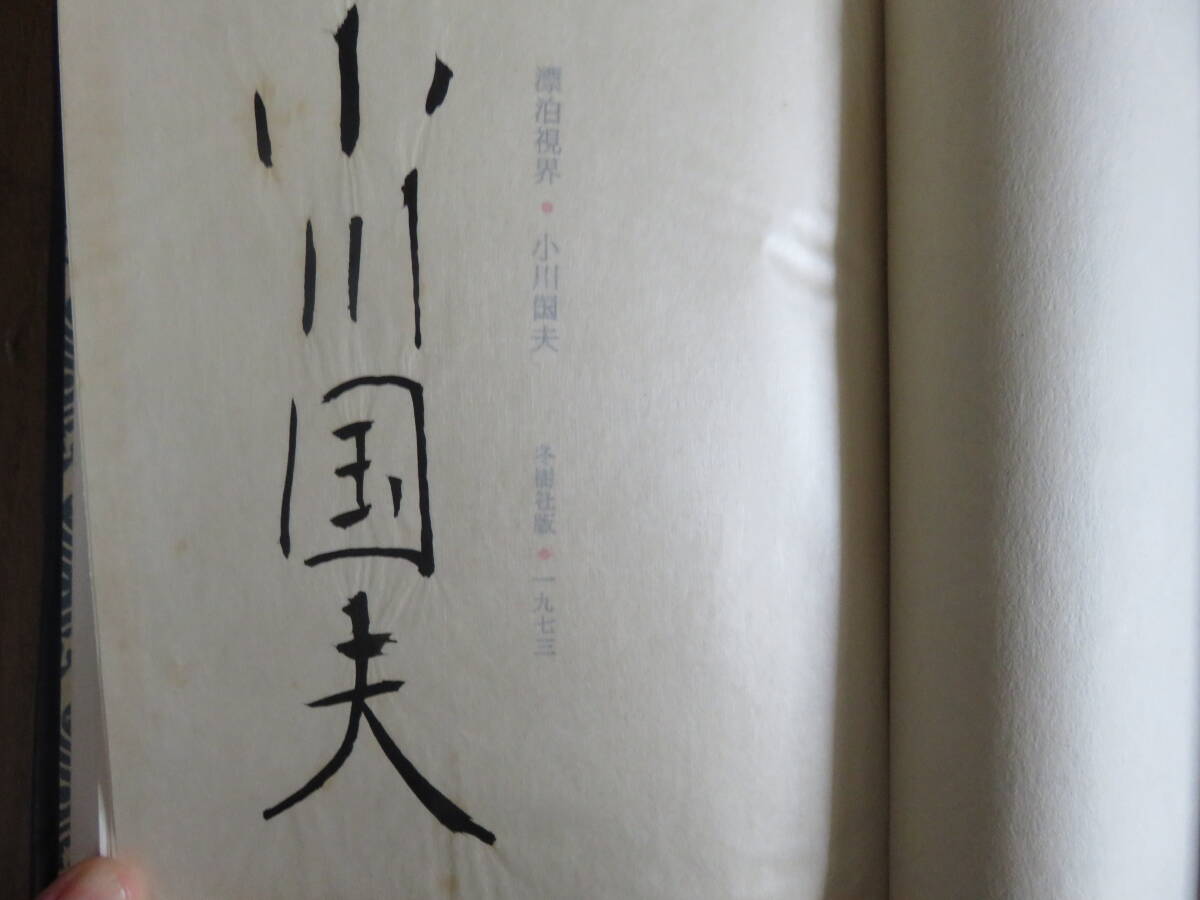 漂泊視界・小川国夫 冬樹社版・一九七三
小川国夫